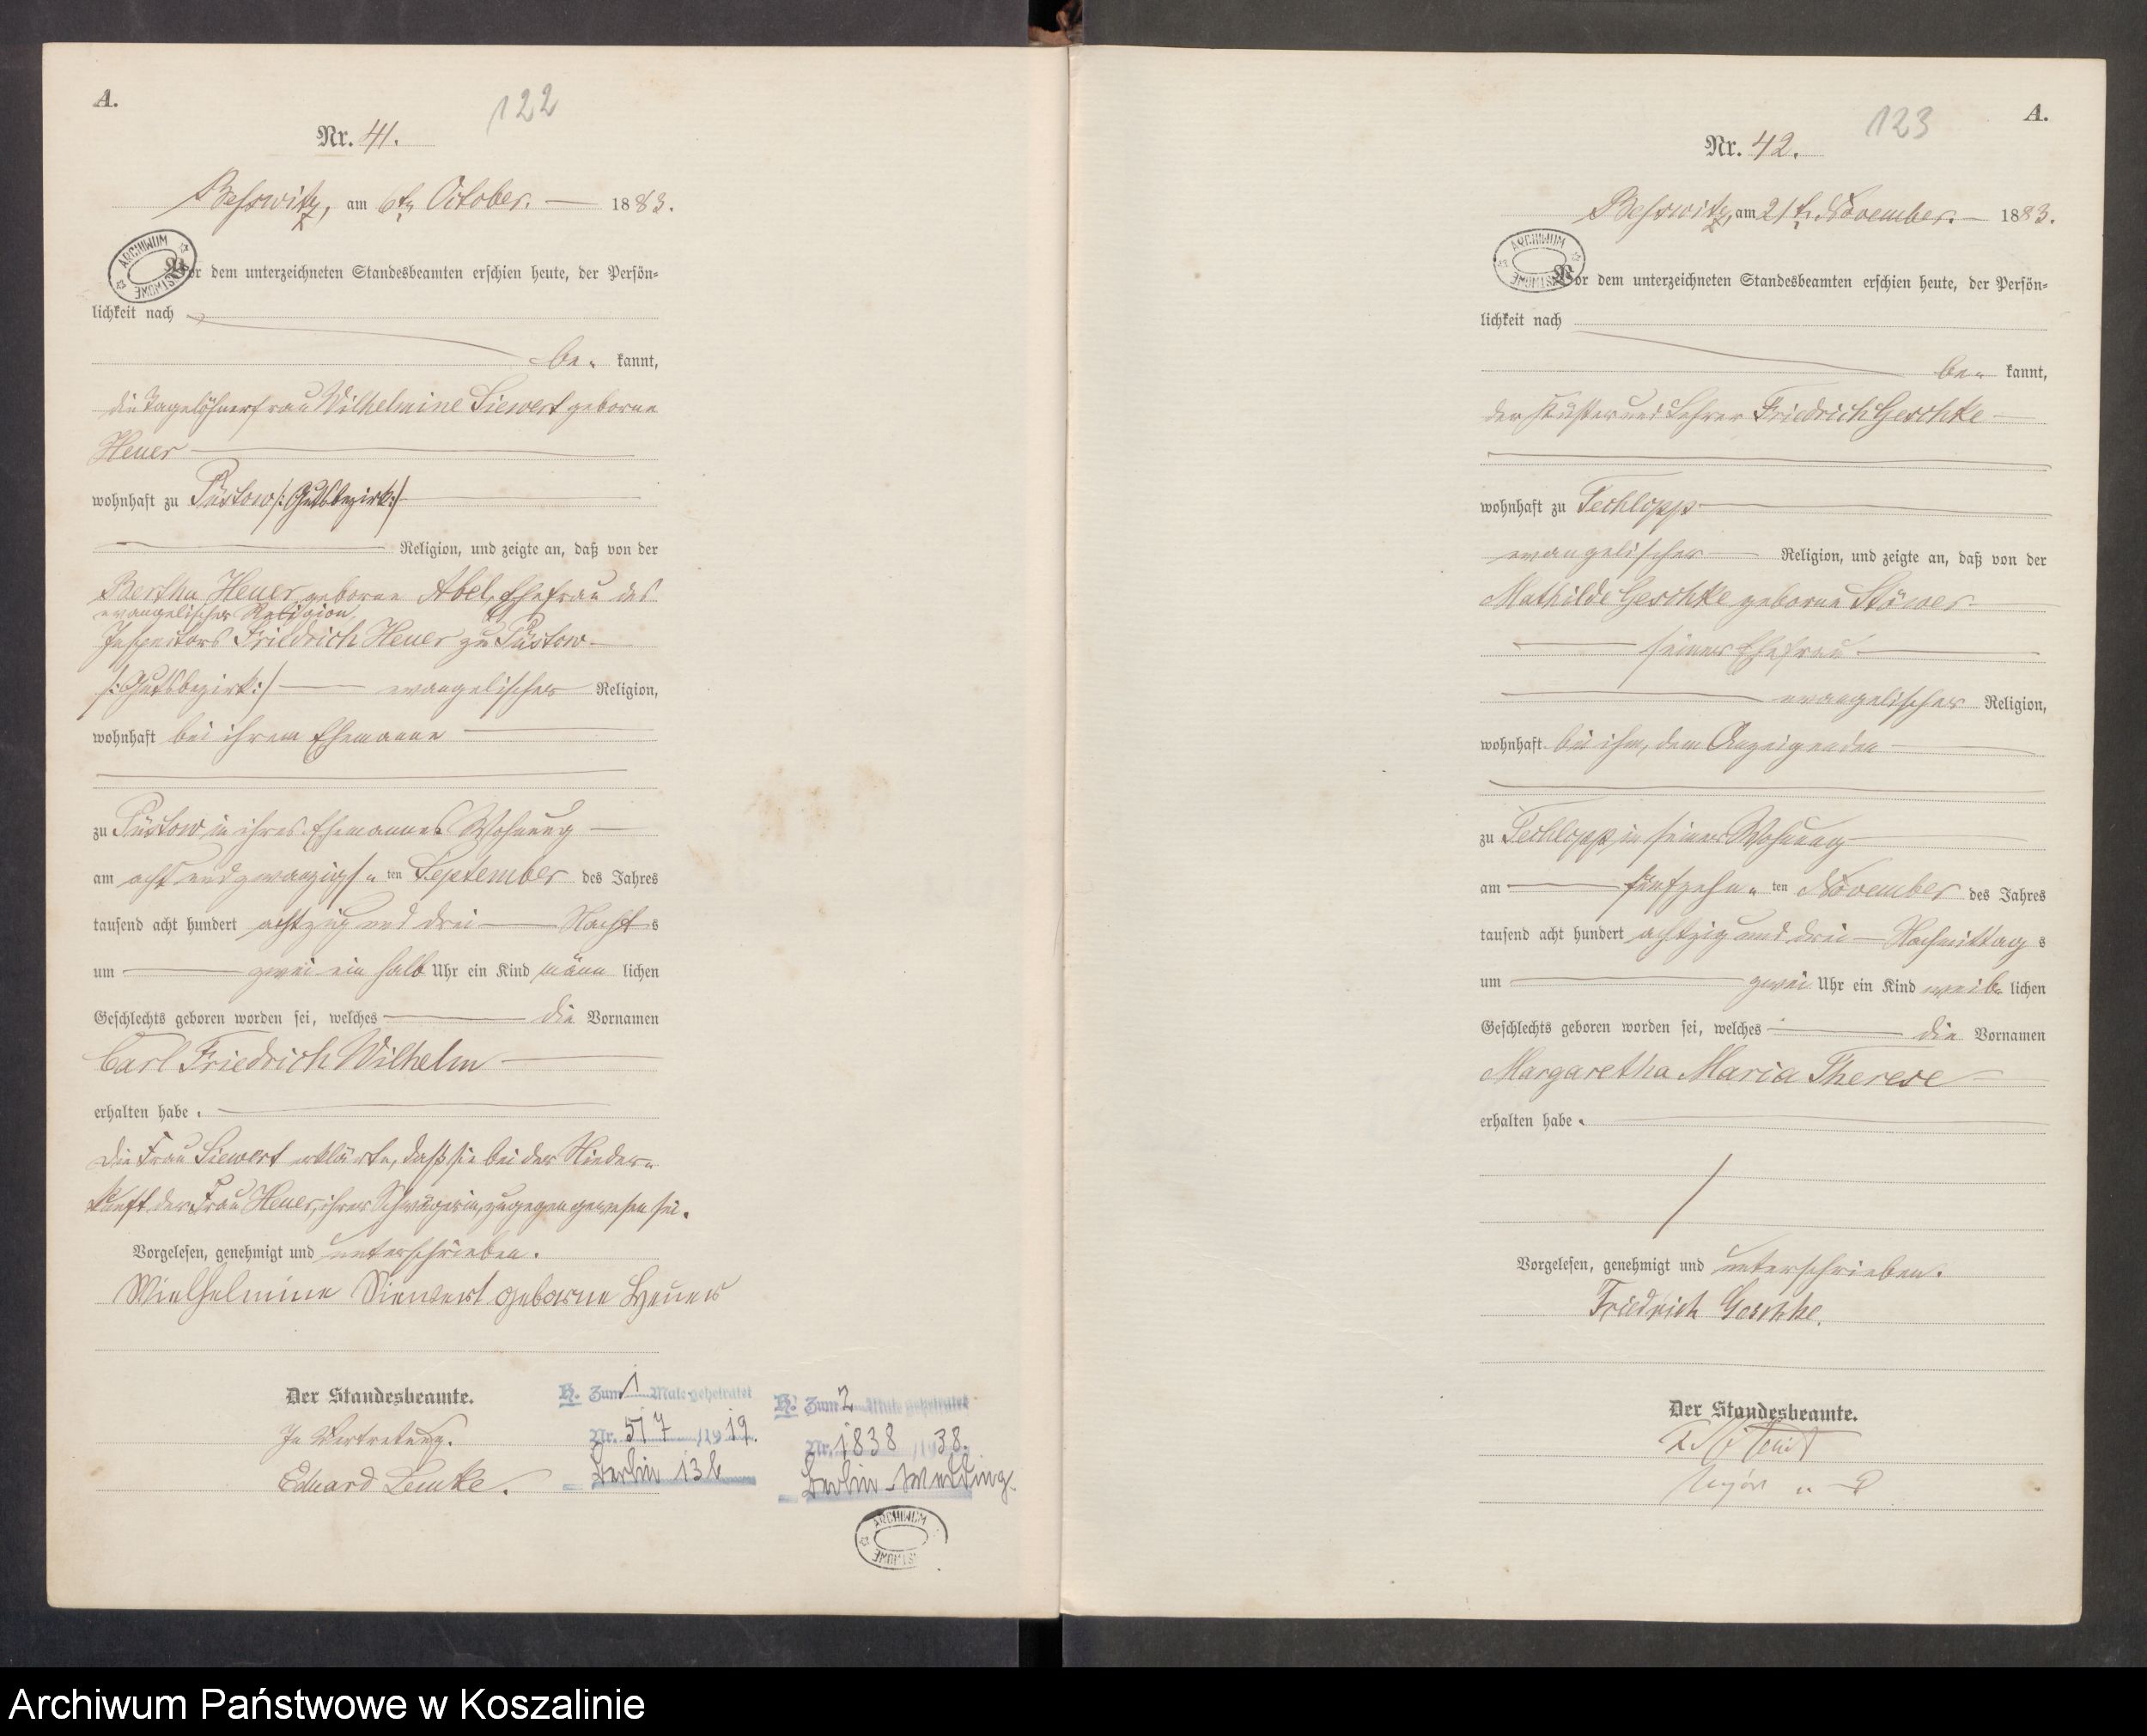 A.
122
Nr. 41.
Beßwitz, am 6ten October. 1883.
ARCHIWUM
Vor dem unterzeichneten Standesbeamten erschien heute, der Persön=
lichkeit nach
be- kannt,
die Tagelöhnerfrau Wilhelmine Siewert geborne
Heuer
wohnhaft zu Püstow /:Gutsbezirk:/
Religion, und zeigte an, daß von der
Bertha Heuer, geborne Abel, Ehefrau des
evangelischer Religion
Inspectors Friedrich Heuer zu Püstow
/:Gutsbezirk:/ evangelischer Religion,
wohnhaft bei ihrem Ehemanne
zu Püstow in ihres Ehemannes Wohnung
am acht und zwanzigs- ten September des Jahres
tausend acht hundert achtzig und drei Nachts
um zwei ein halb Uhr ein Kind männ lichen
Geschlechts geboren worden sei, welches die Vornamen
Carl Friedrich Wilhelm
erhalten habe.
Die Frau Siewert erklärte, daß sie bei der Nieder-
kunft der Frau Heuer, ihrer Schwägerin, zugegen gewesen sei.
Vorgelesen, genehmigt und unterschrieben.
Wielhelmine Siewert geborne Heuer
Der Standesbeamte.
In Vertretung.
Eduard Lemke.
H. Zum 1 Male geheiratet
Nr. 517 /1919.
Berlin 13b
H. Zum 2 Male geheiratet
Nr. 1838 /1938.
Berlin-Wedding.
ARCHIWUM
123
A.
Nr. 42.
Beßwitz, am 21ten November. 1883.
ARCHIWUM
Vor dem unterzeichneten Standesbeamten erschien heute, der Persön=
lichkeit nach
be- kannt,
der Küster und Lehrer Friedrich Geschke
wohnhaft zu Techlipp
evangelischer Religion, und zeigte an, daß von der
Mathilde Geschke geborne Stöwer
seiner Ehefrau
evangelischer Religion,
wohnhaft bei ihm, dem Anzeigenden
zu Techlipp in seiner Wohnung
am fünfzehn- ten November des Jahres
tausend acht hundert achtzig und drei Nachmittags
um zwei Uhr ein Kind weib- lichen
Geschlechts geboren worden sei, welches die Vornamen
Margaretha Maria Therese
erhalten habe.
Vorgelesen, genehmigt und unterschrieben.
Friedrich Geschke.
Der Standesbeamte.
Archiwum Państwowe w Koszalinie